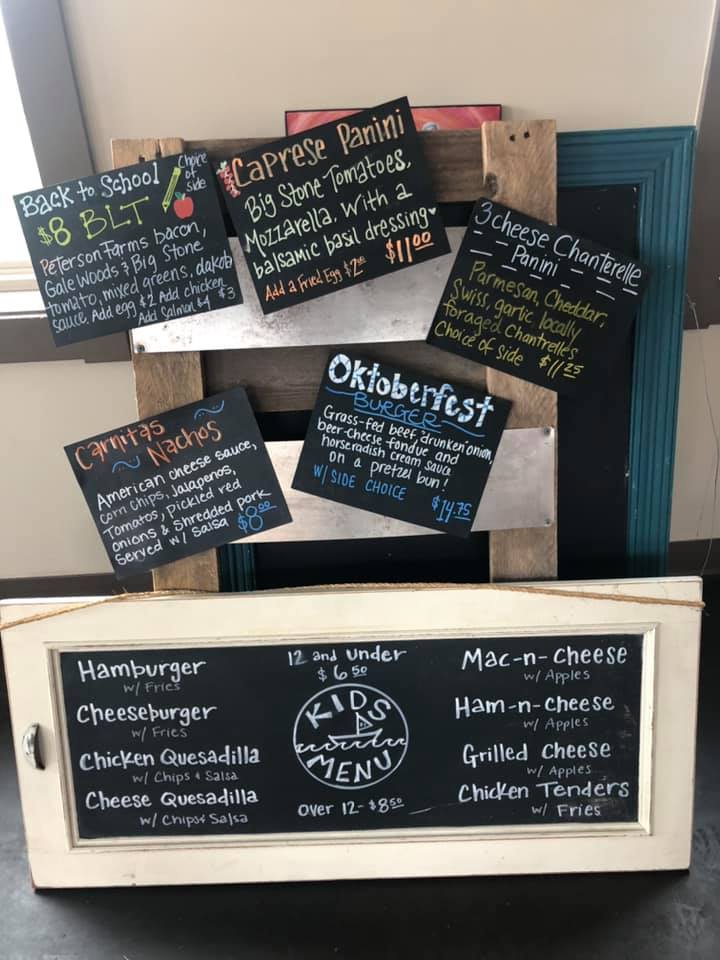 Back to School
Choice
of
side
$8 BLT
Peterson Farms bacon,
Gale Woods & Big Stone
tomato, mixed greens, dakota
sauce. Add egg $2 Add chicken $3
Add Salmon $4
Caprese Panini
Big Stone Tomatoes,
Mozzarella, With a
balsamic basil dressing
Add a Fried Egg $2.00 $11.00
3 cheese Chanterelle
Panini
Parmesan, Cheddar,
Swiss, garlic locally
foraged Chantrelles
Choice of side $11.25
Carnitas
Nachos
American cheese sauce,
corn chips, Jalapenos,
Tomatos, pickled red
onions & Shredded pork
Served w/ Salsa $8.00
Oktoberfest
BURGER
Grass-fed beef, drunken onion,
beer-cheese fondue and
horseradish cream sauce
on a pretzel bun!
W/ SIDE CHOICE $14.75
Hamburger
w/ Fries
Cheeseburger
w/ Fries
Chicken Quesadilla
w/ Chips & Salsa
Cheese Quesadilla
w/ Chips & Salsa
12 and under
$6.50
KIDS
MENU
over 12- $8.50
Mac-n-Cheese
w/ Apples
Ham-n-cheese
w/ Apples
Grilled Cheese
w/ Apples
Chicken Tenders
w/ Fries